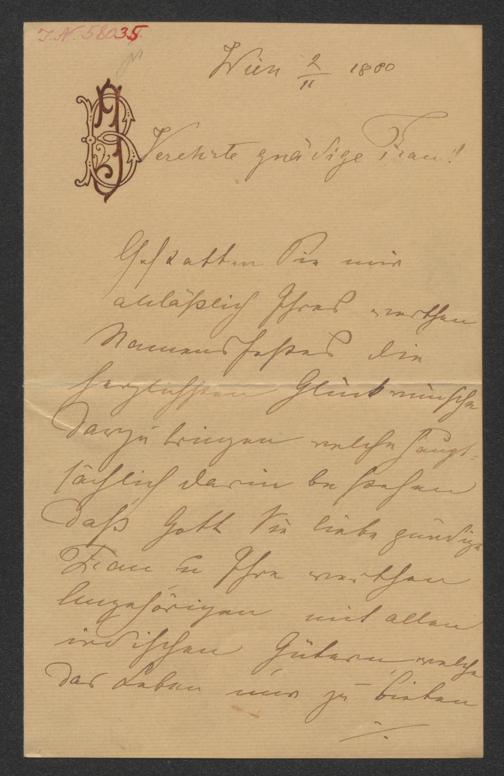 J.N. 58035
Wien 2/11 1880
Verehrte gnädige Frau!
Gestatten Sie mir
anläßlich Ihres werthen
Namensfestes die
herzlichsten Glückwünsche
darzubringen welche haupt-
sächlich darin bestehen
daß Gott Sie liebe gnädige
Frau u Ihre werthen
Angehörigen mit allen
irdischen Gütern welche
das Leben nur zu bieten
./.